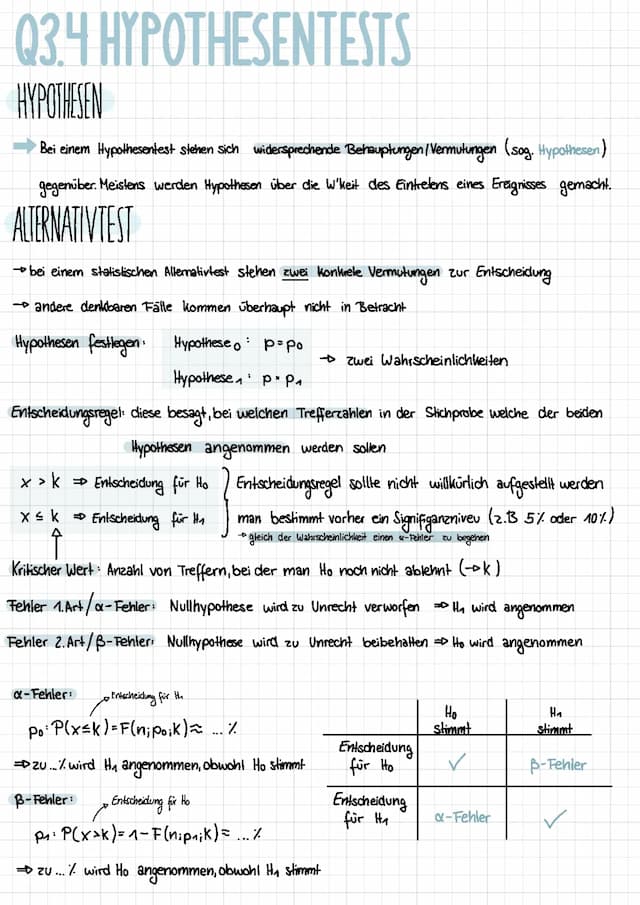 Q3.4 HYPOTHESENTESTS
HYPOTHESEN
→ Bei einem Hypothesentest stehen sich widersprechende Behauptungen/Vermutungen (sog. Hypothesen)
gegenüber. Meistens werden Hypothesen über die W'keit des Eintretens eines Ereignisses gemacht.
ALTERNATIVTEST
→ bei einem statistischen Alternativtest stehen zwei konkrete Vermutungen zur Entscheidung
→ andere denkbaren Fälle kommen überhaupt nicht in Betracht
Hypothesen festlegen: Hypothese₀: p = p₀
→ zwei Wahrscheinlichkeiten
Hypothese₁: p = p₁
Entscheidungsregel: diese besagt, bei welchen Trefferzahlen in der Stichprobe welche der beiden
Hypothesen angenommen werden sollen
x > k ⇒ Entscheidung für H₀ } Entscheidungsregel sollte nicht willkürlich aufgestellt werden
x ≤ k ⇒ Entscheidung für H₁ man bestimmt vorher ein Signifganzniveu (z.B 5% oder 10%)
→ gleich der Wahrscheinlichkeit einen α-Fehler zu begehen
Kritischer Wert: Anzahl von Treffern, bei der man H₀ noch nicht ablehnt (→ k)
Fehler 1.Art/α-Fehler: Nullhypothese wird zu Unrecht verworfen ⇒ H₁ wird angenommen
Fehler 2.Art/β-Fehler: Nullhypothese wird zu Unrecht beibehalten ⇒ H₀ wird angenommen
α-Fehler:
Entscheidung für H₁
p₀: P(x≤k) = F(n;p₀;k) ≈ ... %
⇒ zu ...% wird H₁ angenommen, obwohl H₀ stimmt
β-Fehler:
Entscheidung für H₀
p₁: P(x>k) = 1 - F(n;p₁;k) ≈ ... %
⇒ zu ... % wird H₀ angenommen, obwohl H₁ stimmt
H₀ stimmt H₁ stimmt
Entscheidung für H₀ ✓ β-Fehler
Entscheidung für H₁ α-Fehler ✓